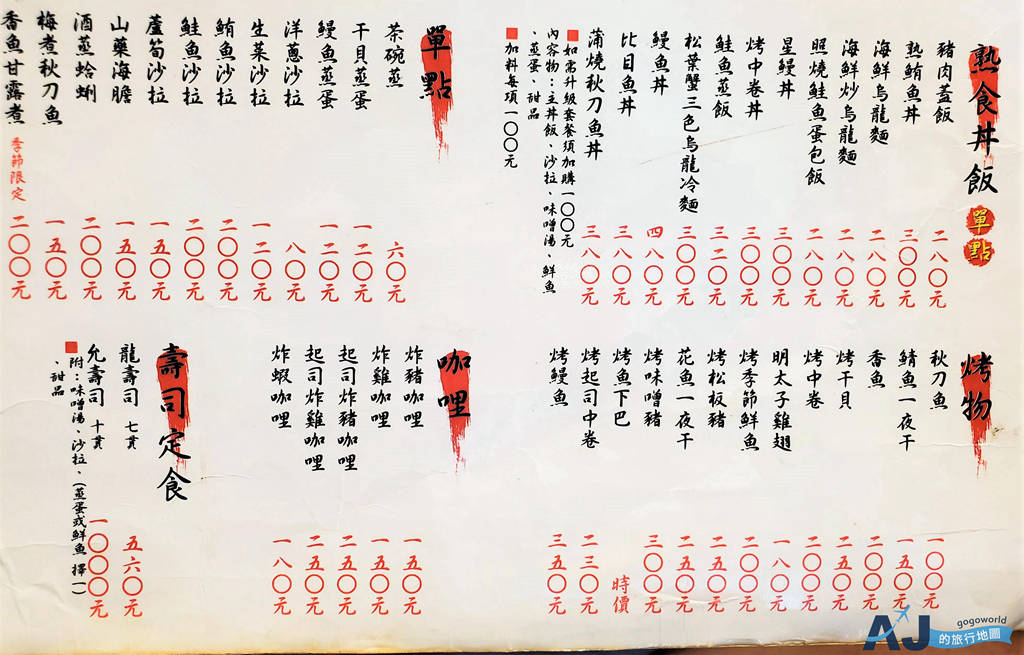 熟食丼飯 單點
豬肉蓋飯 二八〇元
熟鮪魚丼 三〇〇元
海鮮烏龍麵 二八〇元
海鮮炒烏龍麵 二八〇元
照燒鮭魚蛋包飯 二八〇元
星鰻丼 三〇〇元
烤中卷丼 三〇〇元
鮭魚蒸飯 三二〇元
松葉蟹三色烏龍冷麵 三〇〇元
鰻魚丼 四八〇元
比目魚丼 三八〇元
蒲燒秋刀魚丼 三八〇元
如需升級套餐須加購一〇〇元
內容物：主丼飯、沙拉、味噌湯、鮮魚
、蒸蛋、甜品
加料每項一〇〇元
單點
茶碗蒸 六〇元
干貝蒸蛋 一二〇元
鰻魚蒸蛋 一二〇元
洋蔥沙拉 八〇元
生菜沙拉 一二〇元
鮪魚沙拉 二〇〇元
鮭魚沙拉 二〇〇元
蘆筍沙拉 一五〇元
山藥海膽 一五〇元
酒蒸蛤蜊 二〇〇元
梅煮秋刀魚 一五〇元
香魚甘露煮 季節限定 二〇〇元
烤物
秋刀魚 一〇〇元
鯖魚一夜干 一五〇元
香魚 二〇〇元
烤干貝 二五〇元
烤中卷 二〇〇元
明太子雞翅 一八〇元
烤季節鮮魚 二〇〇元
烤松板豬 二五〇元
花魚一夜干 二五〇元
烤味噌豬 三〇〇元
烤魚下巴 時價
烤起司中卷 二三〇元
烤鰻魚 三五〇元
咖哩
炸豬咖哩 一五〇元
炸雞咖哩 一五〇元
起司炸豬咖哩 二五〇元
起司炸雞咖哩 二五〇元
炸蝦咖哩 一八〇元
壽司定食
龍壽司 七貫 五六〇元
允壽司 十貫 一〇〇〇元
附：味噌湯、沙拉、（蒸蛋或鮮魚 擇一）
、甜品
AJ gogoworld
的旅行地圖